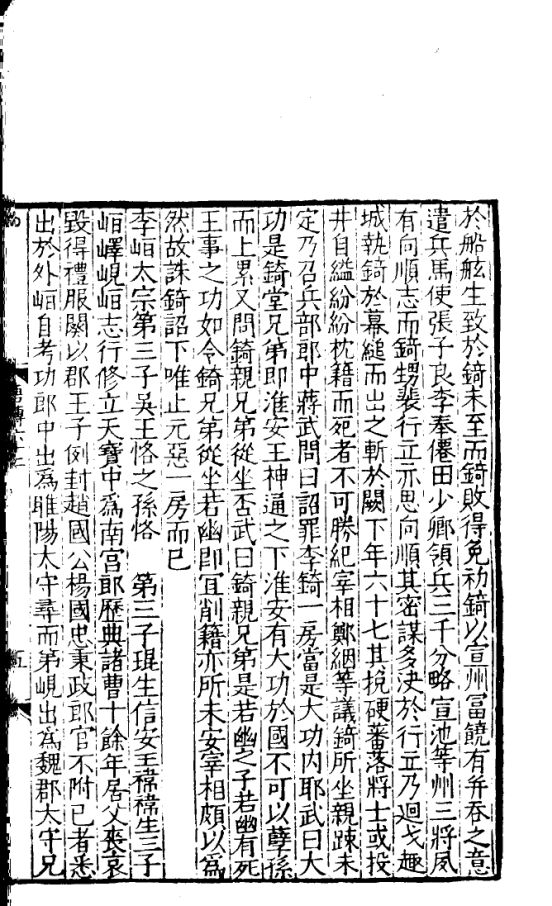 於船舷生致於錡未至而錡敗得免初錡以宣州富饒有并吞之意
遣兵馬使張子良李奉僊田少卿領兵三千分略宣池等州三將夙
有向順志而錡甥裴行立亦思向順其密謀多決於行立乃迴戈趣
城執錡於幕縋而出之斬於闕下年六十七其挽硬蕃落將士或投
井自縊紛紛枕籍而死者不可勝紀宰相鄭絪等議錡所坐親踈未
定乃召兵部郎中蔣武問曰詔罪李錡一房當是大功內耶武曰大
功是錡堂兄弟即淮安王神通之下淮安有大功於國不可以孽孫
而上累又問錡親兄弟從坐否武曰錡親兄弟是若幽之子若幽有死
王事之功如令錡兄弟從坐若幽即宜削籍亦所未安宰相頗以為
然故誅錡詔下唯止元惡一房而已
李峘太宗第三子吳王恪之孫恪　第三子琨生信安王褘褘生三子
峘嶧峴峘志行修立天寶中為南宮郎歷典諸曹十餘年居父喪哀
毀得禮服闋以郡王子例封趙國公楊國忠秉政郎官不附己者悉
出於外峘自考功郎中出為睢陽太守尋而弟峴出為魏郡太守兄
五